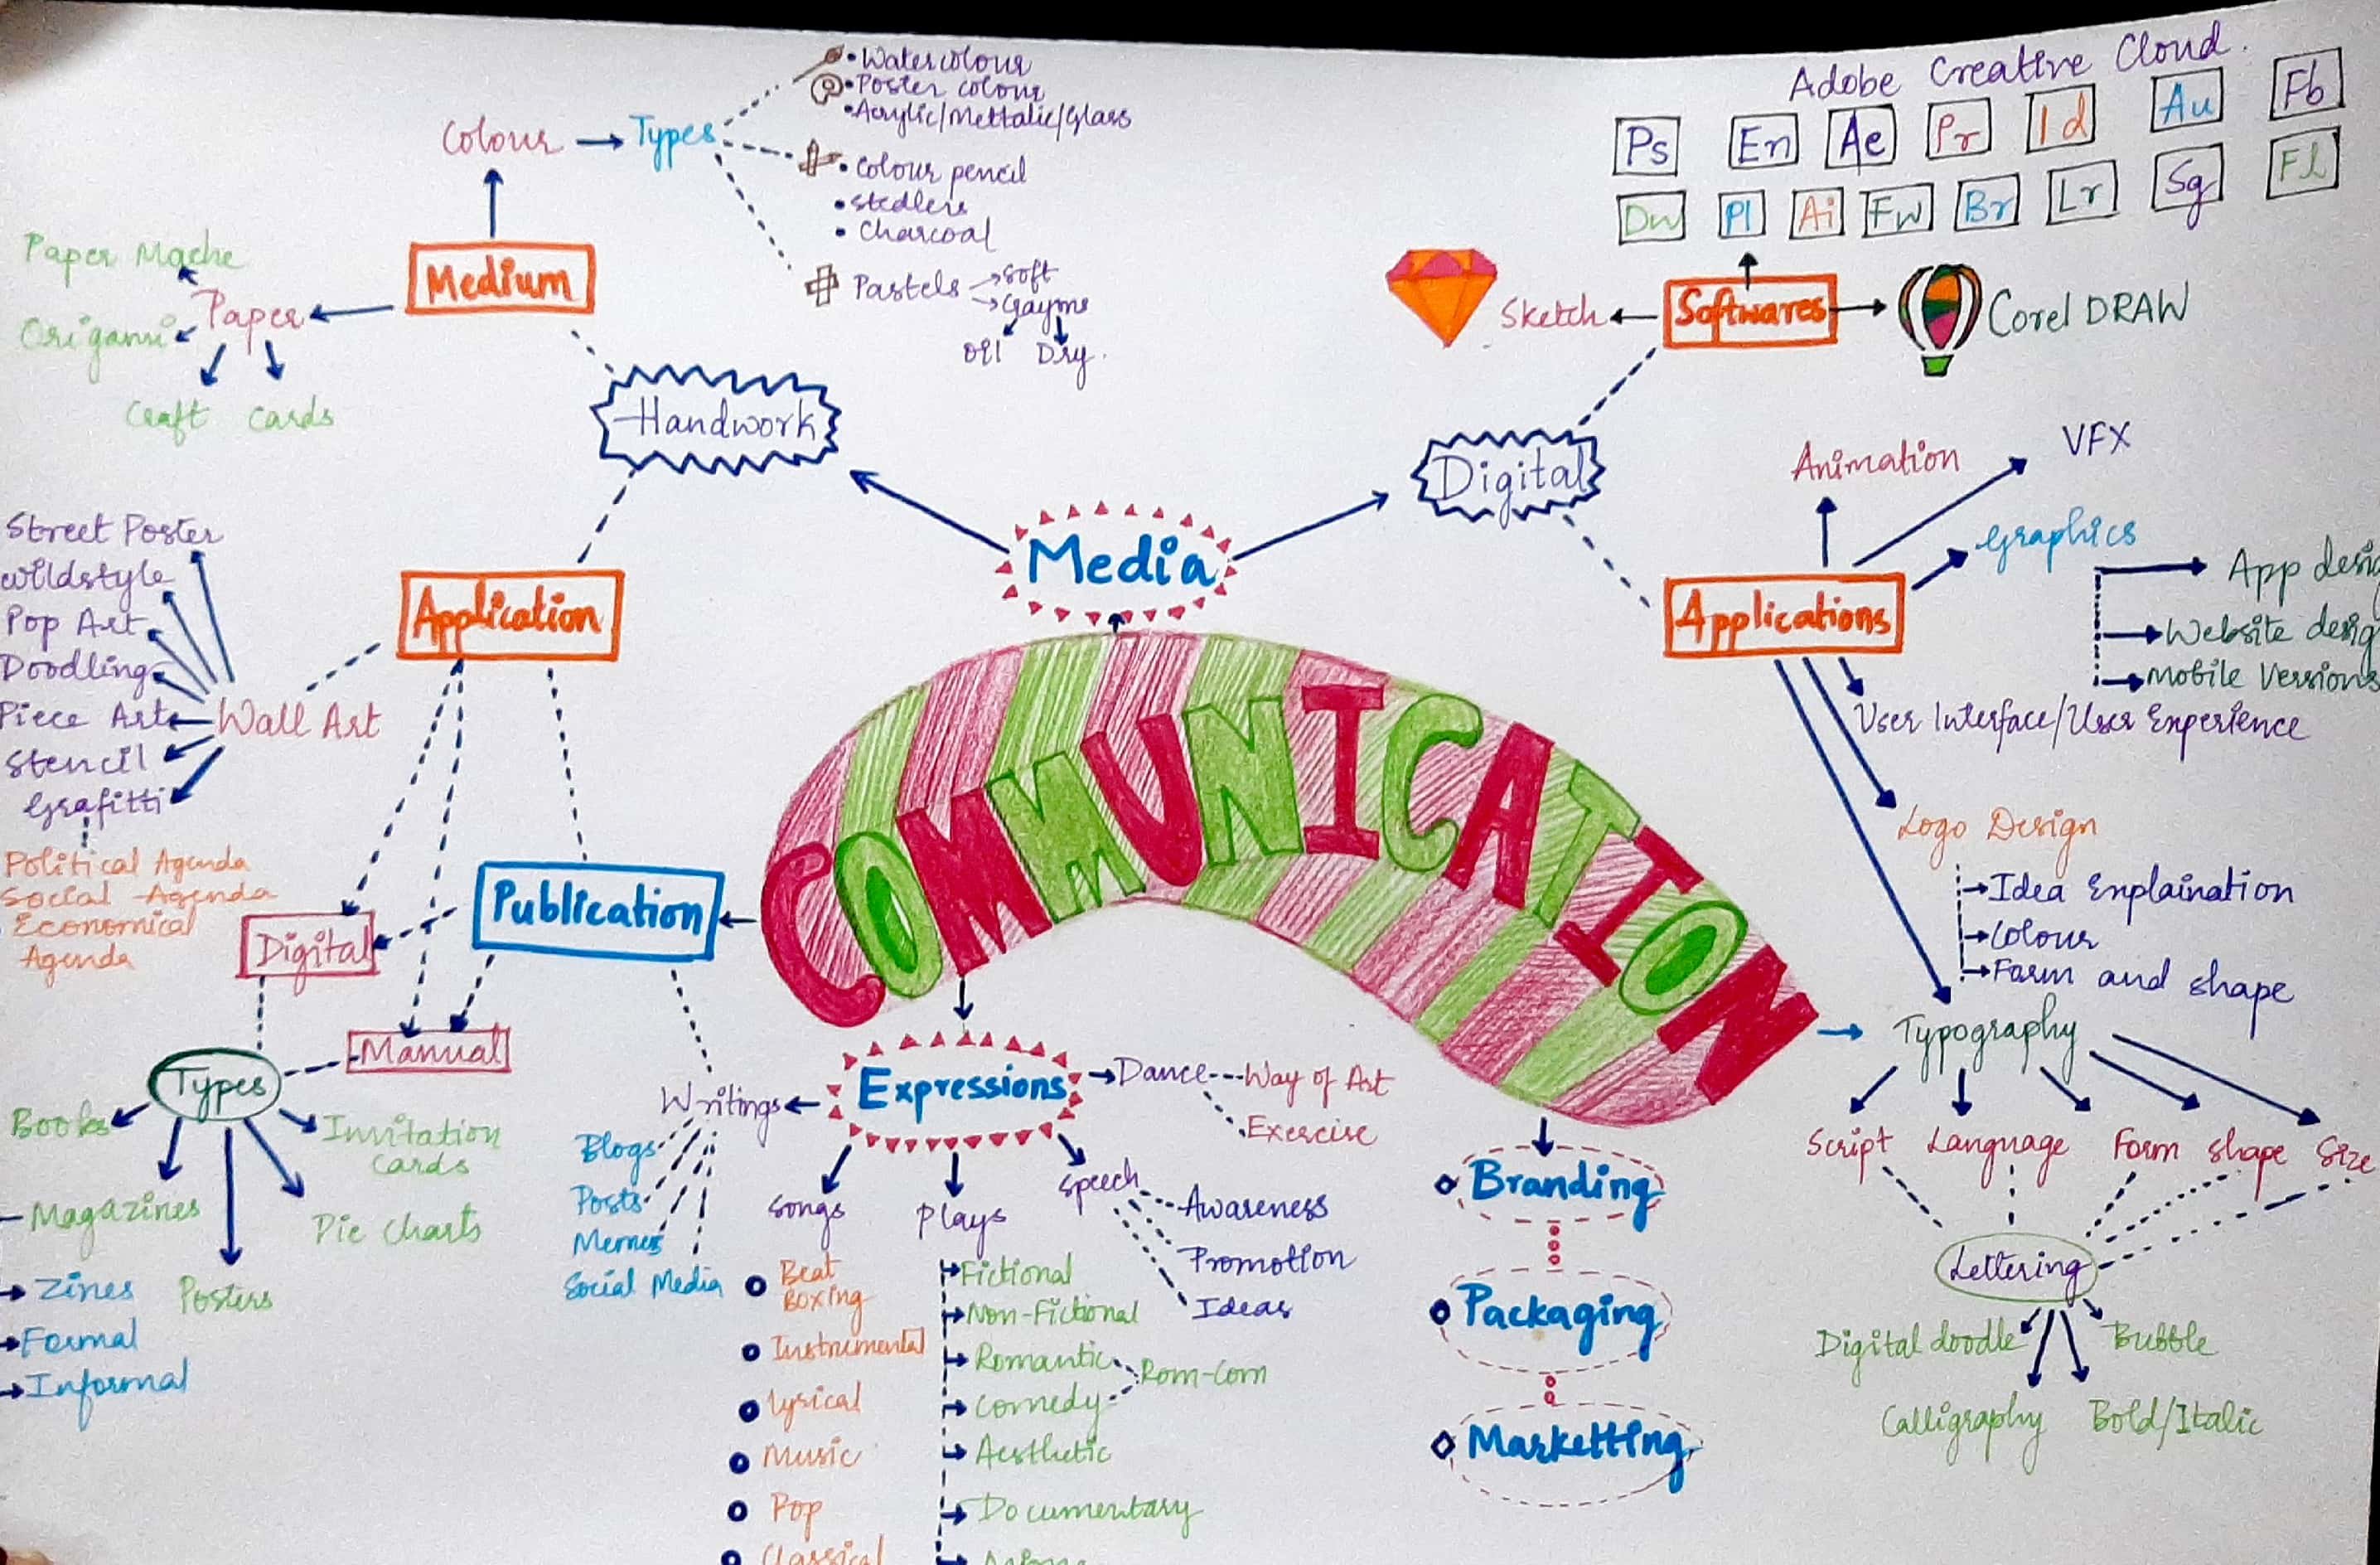 Adobe Creative Cloud.
Ps En Ae Pr Id Au Fb
Dw Pl Ai Fw Br Lr Sg Fl
Softwares
Sketch
Corel DRAW
Colour
Types
Watercolour
Poster colour
Acrylic/Mettalic/Glass
Colour pencil
Stedlers
Charcoal
Pastels
Soft
Oil
Dry.
Medium
Paper Mache
Paper
Origami
Craft
Cards
Handwork
Digital
Media
Application
Street Poster
Wildstyle
Pop Art
Doodling
Piece Art
Stencil
Grafitti
Wall Art
Political Agenda
Social Agenda
Economical
Agenda
Applications
Animation
VFX
Graphics
App desig
Website desig
Mobile Versions
User Interface/User Experience
Logo Design
Idea Explaination
Colour
Form and shape
Typography
Script
Language
Form
Shape
Size
Lettering
Digital doodle
Bubble
Calligraphy
Bold/Italic
COMMUNICATION
Publication
Digital
Manual
Types
Books
Invitation
Cards
Magazines
Pie Charts
Posters
Zines
Formal
Informal
Expressions
Writings
Blogs
Posts
Memes
Social Media
Dance
Way of Art
Exercise
Songs
Beat
Boxing
Instrumental
Lyrical
Music
Pop
Classical
Plays
Fictional
Non-Fictional
Romantic
Comedy
Rom-Com
Aesthetic
Documentary
Speech
Awareness
Promotion
Ideas
Branding
Packaging
Marketting